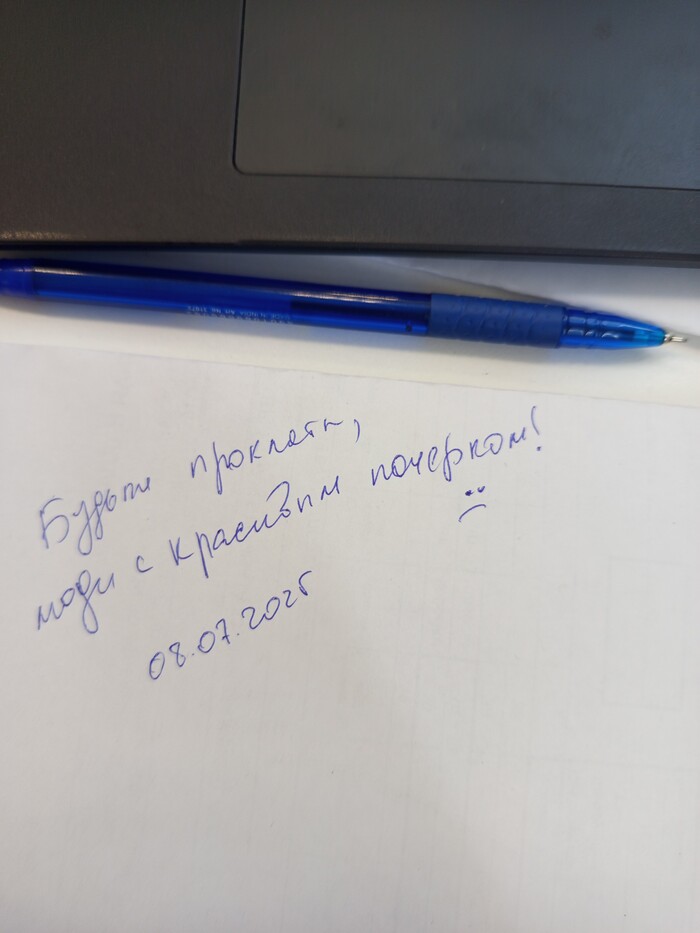 Будьте прокляты,
люди с красивым почерком!
08.07.2025